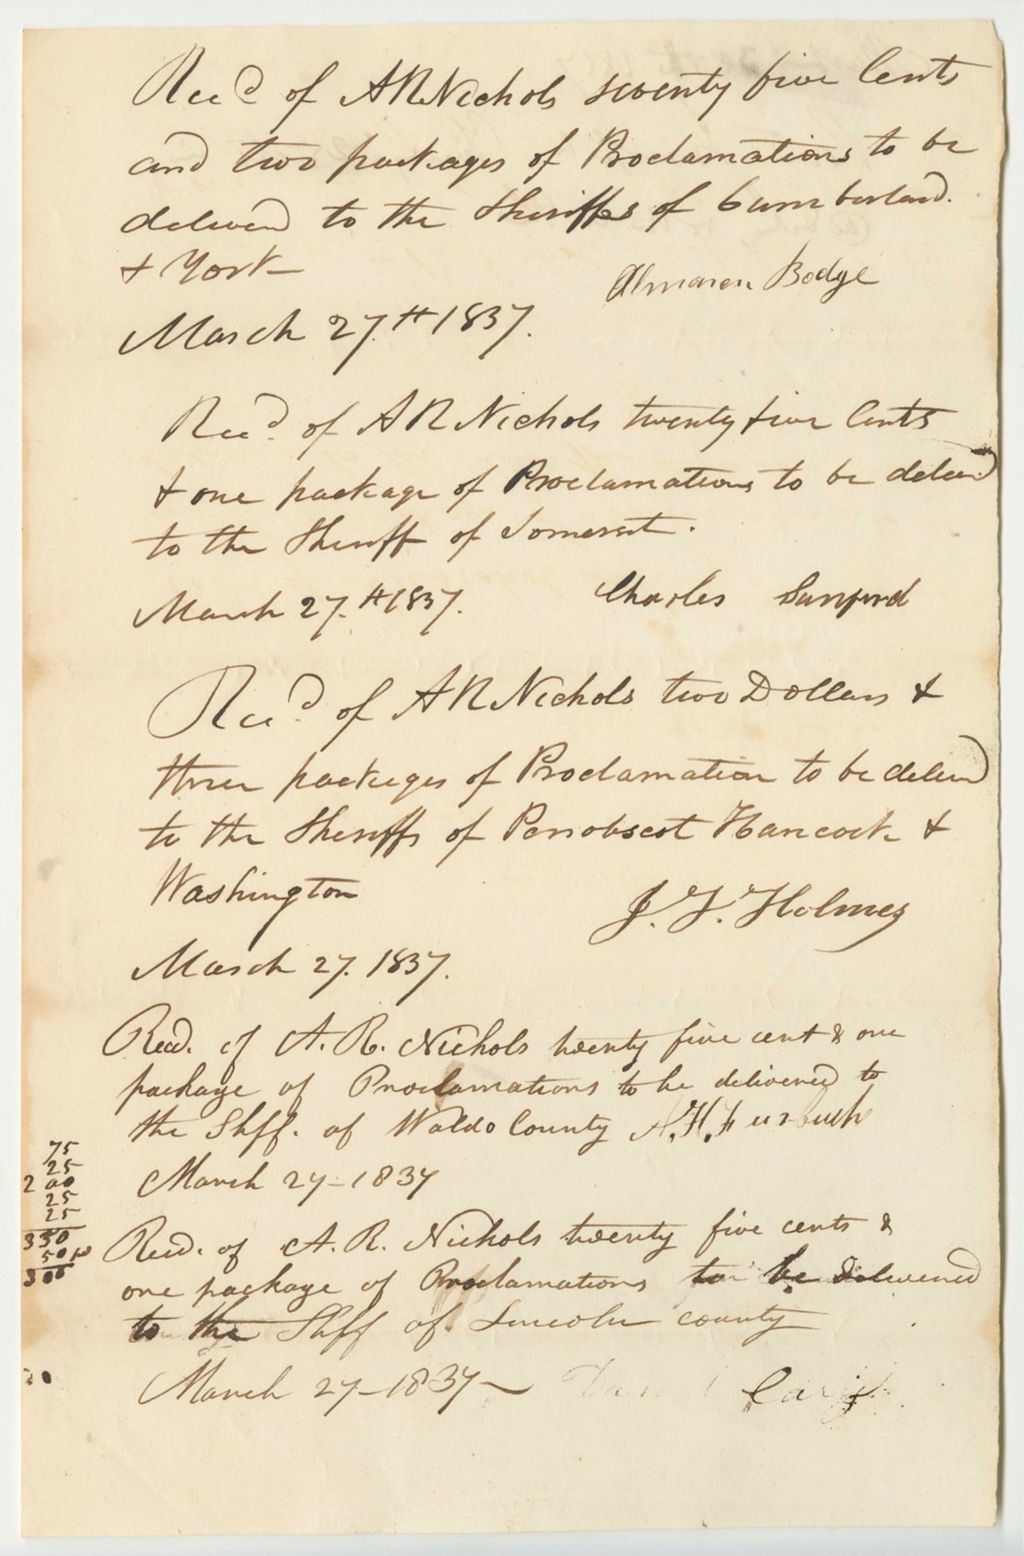 Recd of A R Nichols seventy five Cents
and two packages of Proclamations to be
delivered to the Sheriffs of Cumberland.
+ York—
Almaren Bodge
March 27.th 1837.
Recd. of A R Nichols twenty five Cents
+ one package of Proclamations to be deliverd
to the Sheriff of Somerset.
March 27.th 1837. Charles Sanford
Recd. of A R Nichols two Dollars +
three packages of Proclamation to be deliverd
to the Sheriffs of Penobscot Hancock +
Washington
J. F. Holmes
March 27. 1837.
Recd. of A. R. Nichols twenty five cent & one
package of Proclamations to be delivered to
the Shff. of Waldo County A. H.
March 27-1837
Recd. of A. R. Nichols twenty five cents &
one package of Proclamations to be delivered
to the Shff of Lincoln county
March 27-1837—
75
25
2 00
25
25
3 50
50
3 00